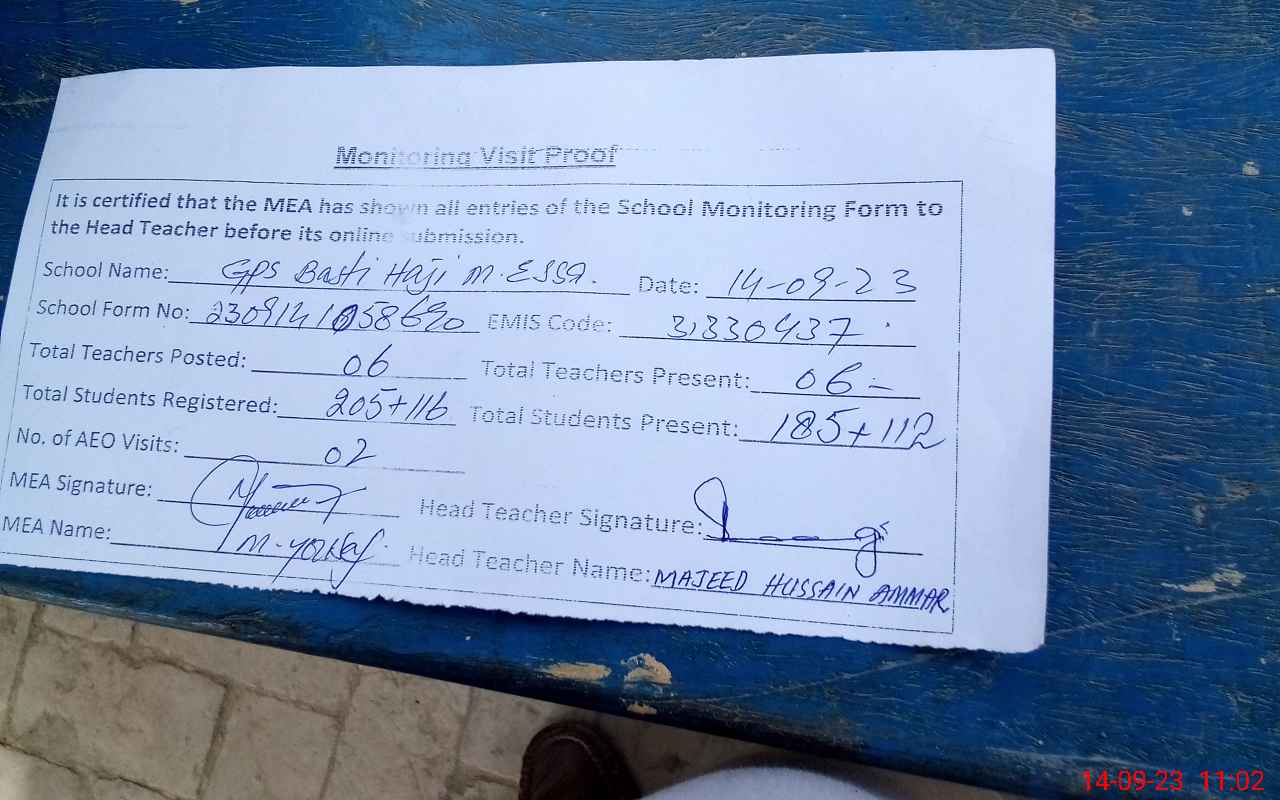 Monitoring Visit Proof
It is certified that the MEA has shown all entries of the School Monitoring Form to
the Head Teacher before its online submission.
School Name: GPS Basti Haji M. ESSA. Date: 14-09-23
School Form No: 2309141058690 EMIS Code: 31330437
Total Teachers Posted: 06 Total Teachers Present: 06 -
Total Students Registered: 205+116 Total Students Present: 185+112
No. of AEO Visits: 02
MEA Signature: Head Teacher Signature:
MEA Name: M. Head Teacher Name: MAJEED HUSSAIN AMMAR
14-09-23 11:02